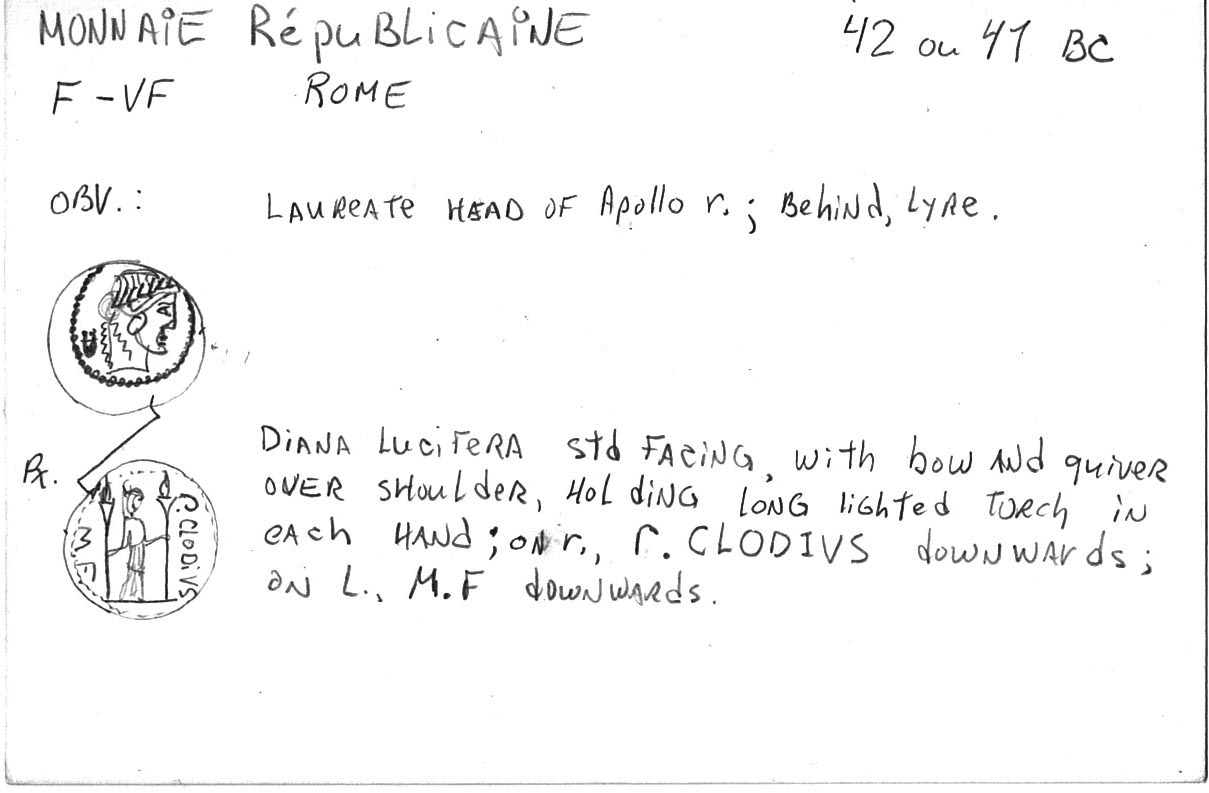 MONNAIE RépuBLiCAiNE 42 ou 41 BC
F-VF ROME
OBV.: LAUReATe HEAD OF Apollo r.; BehiNd, LyRe.
DiANA LuciFeRA std FACiNG, with bow ANd quiveR
R. OVER SHoulder, HolDiNG LONG lighted TORch iN
P. CLODiVS
M.F
eAch HANd; ON r., P. CLODIVS dowNwArds;
ON L., M.F dowNwARds.